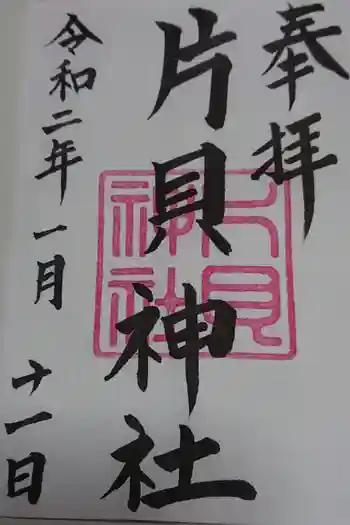 奉拝
片貝神社
令和二年一月十一日
片貝神社